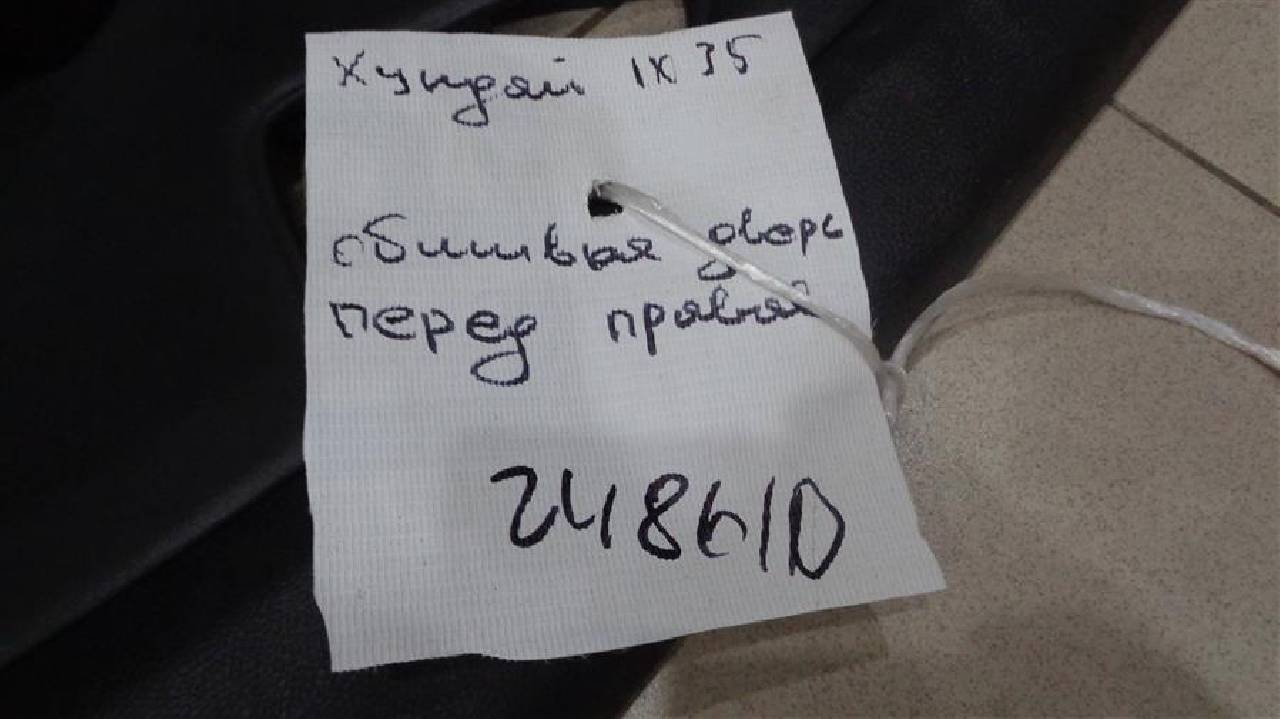 Хундай IX 35
обшивка дверь
перед правая
248610